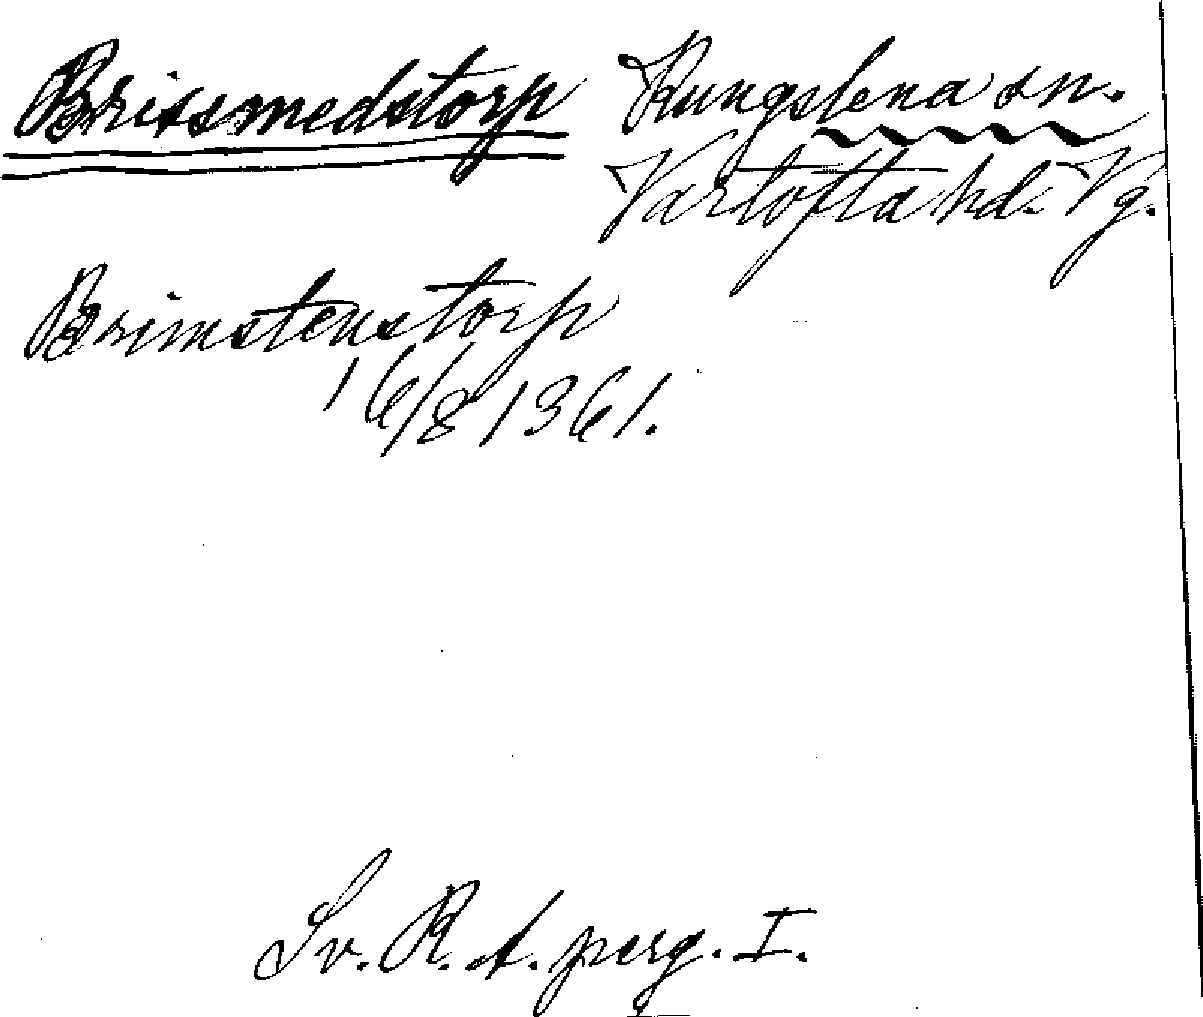 Brissmedstorp Kungslena sn.
Vartofta hd. Vg.
Brimstenstorp
16/8 1361.
Sv. R. A. perg. I.